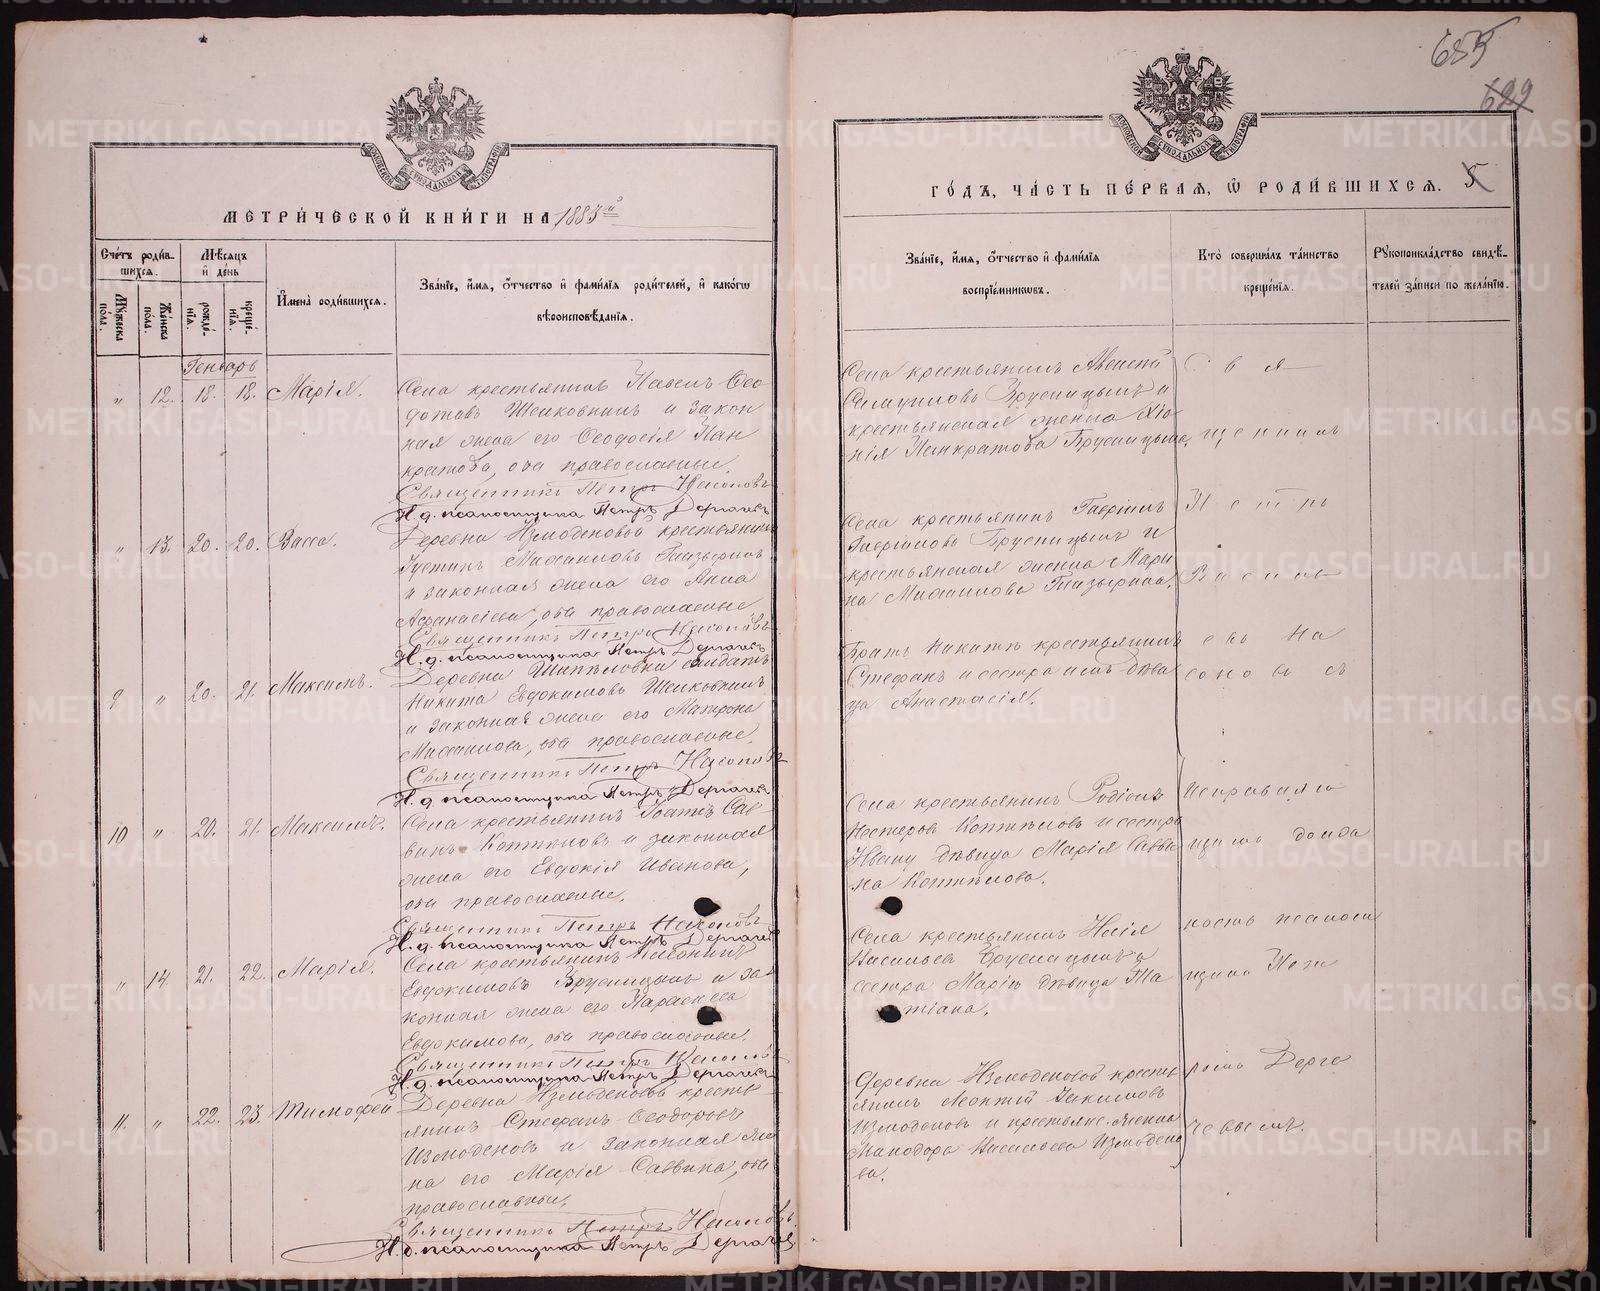 685
622
МЕТРИЧЕСКОЙ КНИГИ НА 1885й
ГОДЪ, ЧАСТЬ ПЕРВАЯ, Ѡ РОДИВШИХСЯ. 5
Счетъ родив-
шихся.
Мужеска пола.
Женска пола.
Мѣсяцъ
и день
рожде-
нія.
креще-
нія.
Имена родившихся.
Званіе, имя, отчество и фамилія родителей, и какогѡ
вѣроисповѣданія.
Званіе, имя, отчество и фамилія
воспріемникѡвъ.
Кто совершалъ таинство
крещенія.
Рукоприкладство свидѣ-
телей записи по желанію.
Генварь
" 12. 18. 18. Марія.
Села крестьянинъ Павелъ Ѳео
дотовъ Шелковкинъ и закон
ная жена его Ѳеодосія Пан
кратова, оба православные.
Священникъ Петръ Насоновъ
И. д. псаломщика Петръ Дергачевъ
Села крестьянинъ
Брусницынъ и
крестьянская женка Хіо
нія Панкратова Брусницына.
" 13. 20. 20. Васса.
Деревни Измоденовой крестьянинъ
Іустинъ Михаиловъ Глазыринъ
и законная жена его Анна
Аѳанасіева, оба православные
Священникъ Петръ Насоновъ
И. д. псаломщика Петръ Дергачевъ
Села крестьянинъ Гавріилъ
Гавріиловъ Брусницынъ и
крестьянская женка Мари
на Михаилова Глазырина.
9 " 20. 21. Максимъ.
Деревни Шипѣловки солдатъ
Никита Евдокимовъ Шелковкинъ
и законная жена его Матрона
Михаилова, оба православные.
Священникъ Петръ Насоновъ
И. д. псаломщика Петръ Дергачевъ
Братъ Никитѣ крестьянинъ
Стефанъ и сестра имъ дѣви
ца Анастасія.
10 " 20. 21. Максимъ.
Села крестьянинъ Іоаннъ Сав-
винъ Коптѣловъ и законная
жена его Евдокія Иванова,
оба православные.
Священникъ Петръ Насоновъ
И. д. псаломщика Петръ Дергачевъ
Села крестьянинъ Родіонъ
Нестеровъ Коптѣловъ и сестра
Ивану дѣвица Марія Савви
на Коптѣлова.
" 14. 21. 22. Марія.
Села крестьянинъ
Евдокимовъ Брусницынъ и за-
конная жена его Параскева
Евдокимова, оба православные.
Священникъ Петръ Насоновъ
И. д. псаломщика Петръ Дергачевъ
Села крестьянинъ
Васильевъ Брусницынъ и
сестра Маріи дѣвица Та
тіана.
11. " 22. 23. Тимофей
Деревни Измоденовой кресть-
янинъ Стефанъ Ѳеодоровъ
Измоденовъ и законная же
на его Марія Саввина, оба
православные.
Священникъ Петръ Насоновъ.
И. д. псаломщика Петръ Дергачевъ
Деревни Измоденовой кресть
янинъ Леонтій Іакимовъ
Измоденовъ и крестьянс. женка
Минодора Васильева Измодено
ва.
Свя
щенникъ
Петръ
Василь
евъ На
соновъ съ
исправляю
щимъ долж
ность псалом
щика Пет
ромъ Дерга
чевымъ.